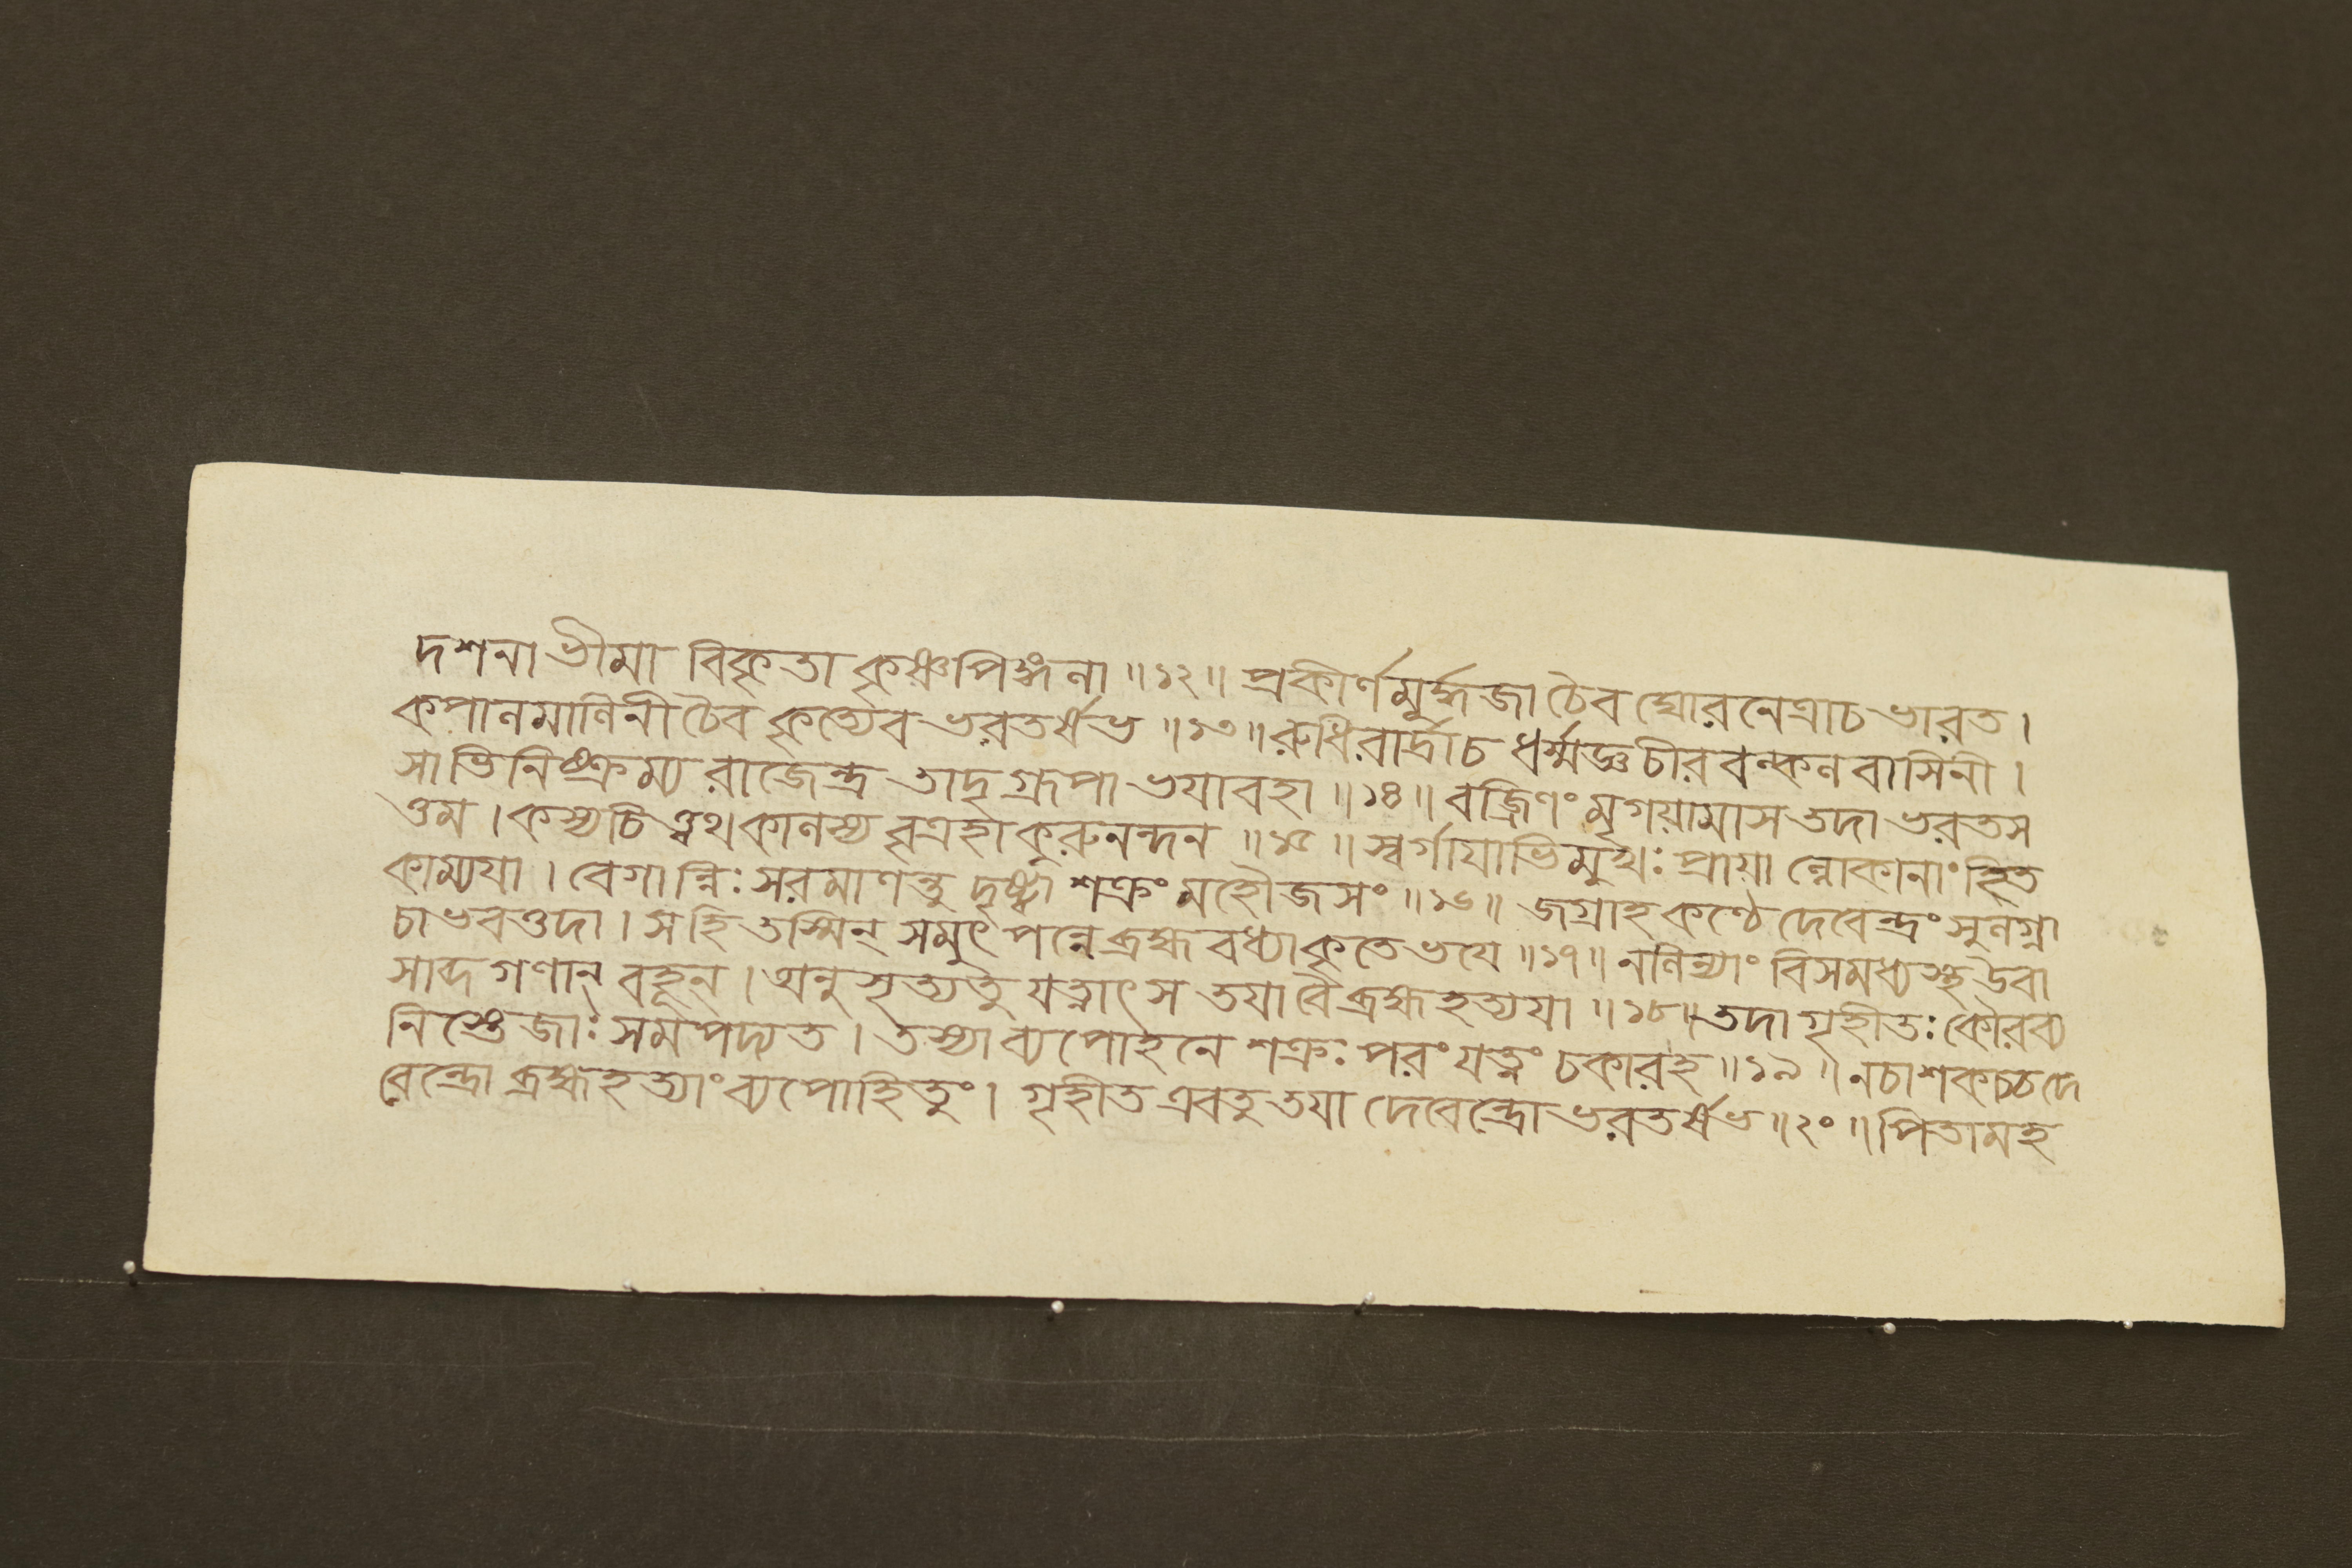 দশনা ভীমা বিকৃতা কৃষ্ণপিঙ্গলা ॥১২॥ প্রকীর্ণমূর্দ্ধজা চৈব ঘোরনেত্রাচ ভারত ।
কপালমালিনী চৈব কৃত্যেব ভরতর্ষভ ॥১৩॥ রুধিরার্দ্রাচ ধর্ম্মজ্ঞ চীরবল্কলবাসিনী ।
সাভিনিষ্ক্রম্য রাজেন্দ্র তাদৃগ্রূপা ভয়াবহা ॥১৪॥ বজ্রিণং মৃগয়ামাস তদা ভরতস
ত্তম । কস্যচিত্ত্বথ কালস্য বৃত্রহা কুরুনন্দন ॥১৫॥ স্বর্গায়াভিমুখঃ প্রায়াল্লোকানাং হিত
কাম্যয়া । বেগান্নিঃসরমাণন্তু দৃষ্ট্বা শক্রং মহৌজসং ॥১৬॥ জগ্রাহ কণ্ঠে দেবেন্দ্রং সুলগ্না
চাভবত্তদা । সহি তস্মিন্ সমুৎপন্নে ব্রহ্মবধ্যাকৃতে ভয়ে ॥১৭॥ নলিন্যাং বিসমধ্যস্থ উবা
সাব্দগণান্ বহূন্ । অনুসৃত্যতু যত্নাৎস তয়াবৈ ব্রহ্মহত্যয়া ॥১৮॥ তদা গৃহীতঃ কৌরব্য
নিস্তেজাঃ সমপদ্যত । তস্যাব্যপোহনে শক্রঃ পরং যত্নং চকারহ ॥১৯॥ নচাশকচ্চদে
বেন্দ্রো ব্রহ্মহত্যাং ব্যপোহিতুং । গৃহীত এবতু তয়া দেবেন্দ্রো ভরতর্ষভ ॥২০॥ পিতামহ